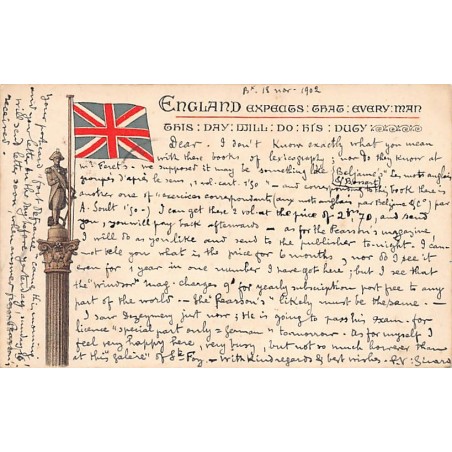 Bx. 18 nov - 1902
ENGLAND EXPECTS : THAT : EVERY : MAN
THIS : DAY : WILL : DO : HIS : DUTY
Dear. I don't know exactly what you mean
with these books of lexicology; nor do they know at
M. Feret's - we supposed it may be something like (Beljame's Les mots anglais
groupés d'après le sens, 1 vol. cart. 1f50 - and corresponding the book there is
another one of "exercices correspondant (aux mots anglais par Beljame &c") par
A. Soult 1f50 -) I can get these 2 vol. at the price of 2f70, and send
you, you will pay back afterwards - as for the Pearson's magazine
I will do as you like and send to the publisher tonight. I can
not tell you what is the price for 6 months, nor do I see it
even for 1 year in one number I have got here; but I see that
the "Windsor" mag. charges 9f for yearly subscription post free to any
part of the world - The "Pearson's" likely must be the same -
I saw Dezeymey just now; He is going to pass his exam. for
licence "special part only = German" tomorrow. As for myself I
feel very happy here, very busy, but not so much however than
at this "galère" of Ste Foy - With kind regards & best wishes
Your postcard came this morning
and your letter on the day before yesterday; money
will send letter soon, when answer from Pearson's
received.